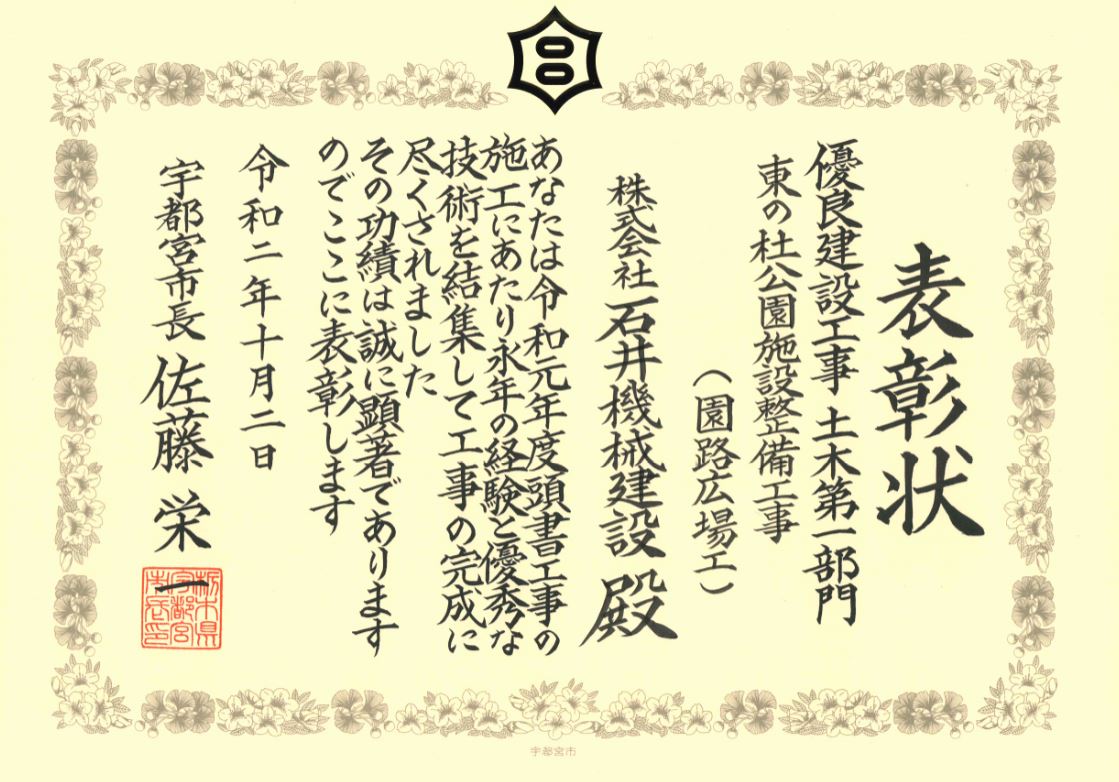 表彰状
優良建設工事 土木第一部門
東の杜公園施設整備工事
（園路広場工）
株式会社 石井機械建設 殿
あなたは令和元年度頭書工事の
施工にあたり永年の経験と優秀な
技術を結集して工事の完成に
尽くされました
その功績は誠に顕著であります
のでここに表彰します
令和二年十月二日
宇都宮市長 佐藤 栄一
栃木県
宇都宮
市長印
宇都宮市